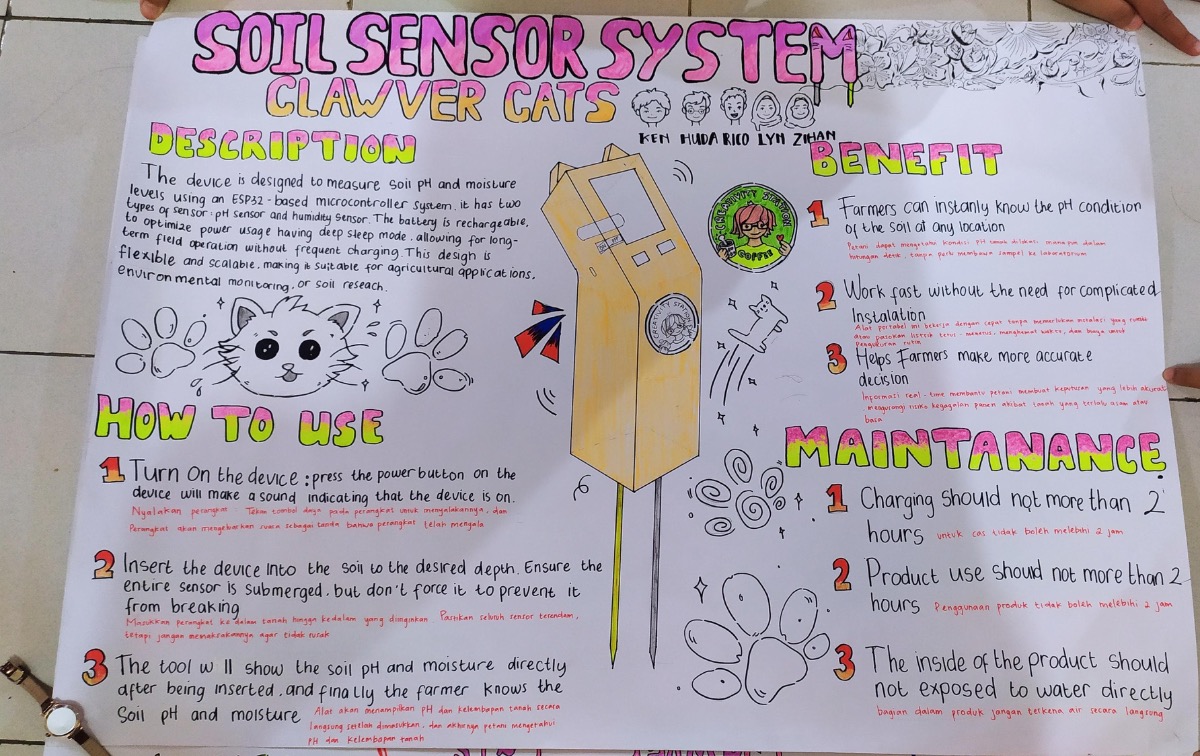 SOIL SENSOR SYSTEM
CLAWVER CATS
KEN HUDA RICO LYN ZIHAN
DESCRIPTION
The device is designed to measure soil pH and moisture
levels using an ESP32-based microcontroller system. it has two
types of sensor: pH sensor and humidity sensor. The battery is rechargeable.
to optimize power usage having deep sleep mode. allowing for long-
term field operation without frequent charging. This desigh is
flexible and scalable. making it suitable for agricultural applications.
environmental monitoring. or soil reseach.
HOW TO USE
1 Turn On the device : press the power button on the
device will make a sound indicating that the device is on.
Nyalakan perangkat. Tekan tombol daya pada perangkat untuk menyalakannya, dan
Perangkat akan mengeluarkan suara sebagai tanda bahwa perangkat telah menyala
2 Insert the device into the soil to the desired depth. Ensure the
entire sensor is submerged. but don't force it to prevent it
from breaking
Masukkan perangkat ke dalam tanah hingga kedalam yang diinginkan Pastikan seluruh sensor terendam,
tetapi jangan memaksakannya agar tidak rusak
3 The tool w ll show the soil pH and moisture directly
after being inserted. and finally the farmer knows the
Soil pH and moisture
Alat akan menampilkan pH dan kelembapan tanah secara
langsung setelah dimasukkan, dan akhirnya petani mengetahui
PH dan kelembapan tanah
CREATIVITY STATION
COFFEE
CREATIVITY STATION
BENEFIT
1 Farmers can instanly know the pH condition
of the soil at any location
Petani dapat mengetahui kondisi PH tanah dilokasi manapun dalam
hitungan detik, tanpa perlu membawa sampel ke laboratorium
2 Work fast without the need for complicated
Instalation
Alat portabel ini bekerja dengan cepat tanpa memerlukan instalasi yang rumit
atau pasokan listrik terus-menerus, menghemat waktu, dan biaya untuk
Pengukuran rutin
3 Helps Farmers make more accurate
decision
Informasi real-time membantu petani membuat keputusan yang lebih akurat
mengurangi risiko kegagalan panen akibat tanah yang terlalu asam atau
basa
MAINTANANCE
1 Charging should not more than 2
hours untuk cas tidak boleh melebihi 2 jam
2 Product use should not more than 2
hours Penggunaan produk tidak boleh melebihi 2 jam
3 The inside of the product should
not exposed to water directly
bagian dalam produk jangan terkena air secara langsung